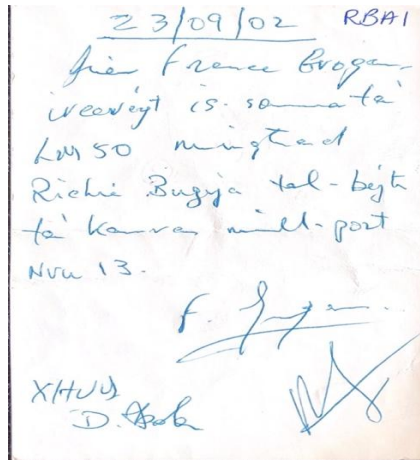 23/09/02 RBA1
Jien France Grogan
irceveyt is-somma ta'
LM 50 mingħand
Richie Bugeja tal-bejgħ
ta' kamra mill-post
NVU 13.
F.
XHUD
D.